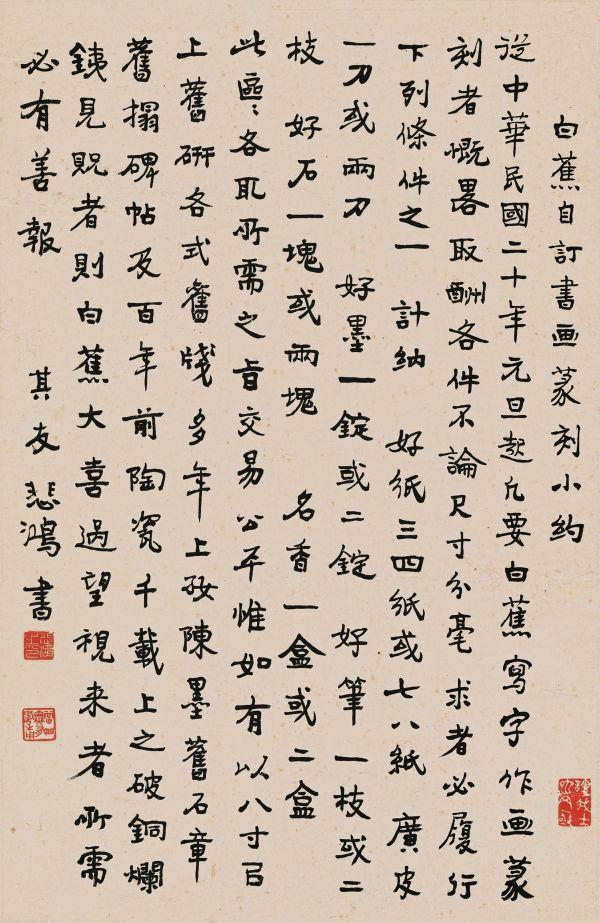 白蕉自訂書画篆刻小約
從中華民國二十年元旦起凡要白蕉寫字作画篆
刻者慨畧取酬各件不論尺寸分毫求者必履行
下列條件之一 計納 好紙三四紙或七八紙 廣皮
一刀或兩刀 好墨一錠或二錠 好筆一枝或二
枝 好石一塊或兩塊 名香一盒或二盒
此區〻各取所需之旨交易公平惟如有以八寸㠯
上舊硏各式舊牋多年上好陳墨舊石章
舊搨碑帖及百年前陶瓷千載上之破銅爛
銕見貺者則白蕉大喜過望視来者所需
必有善報 其友悲鴻書